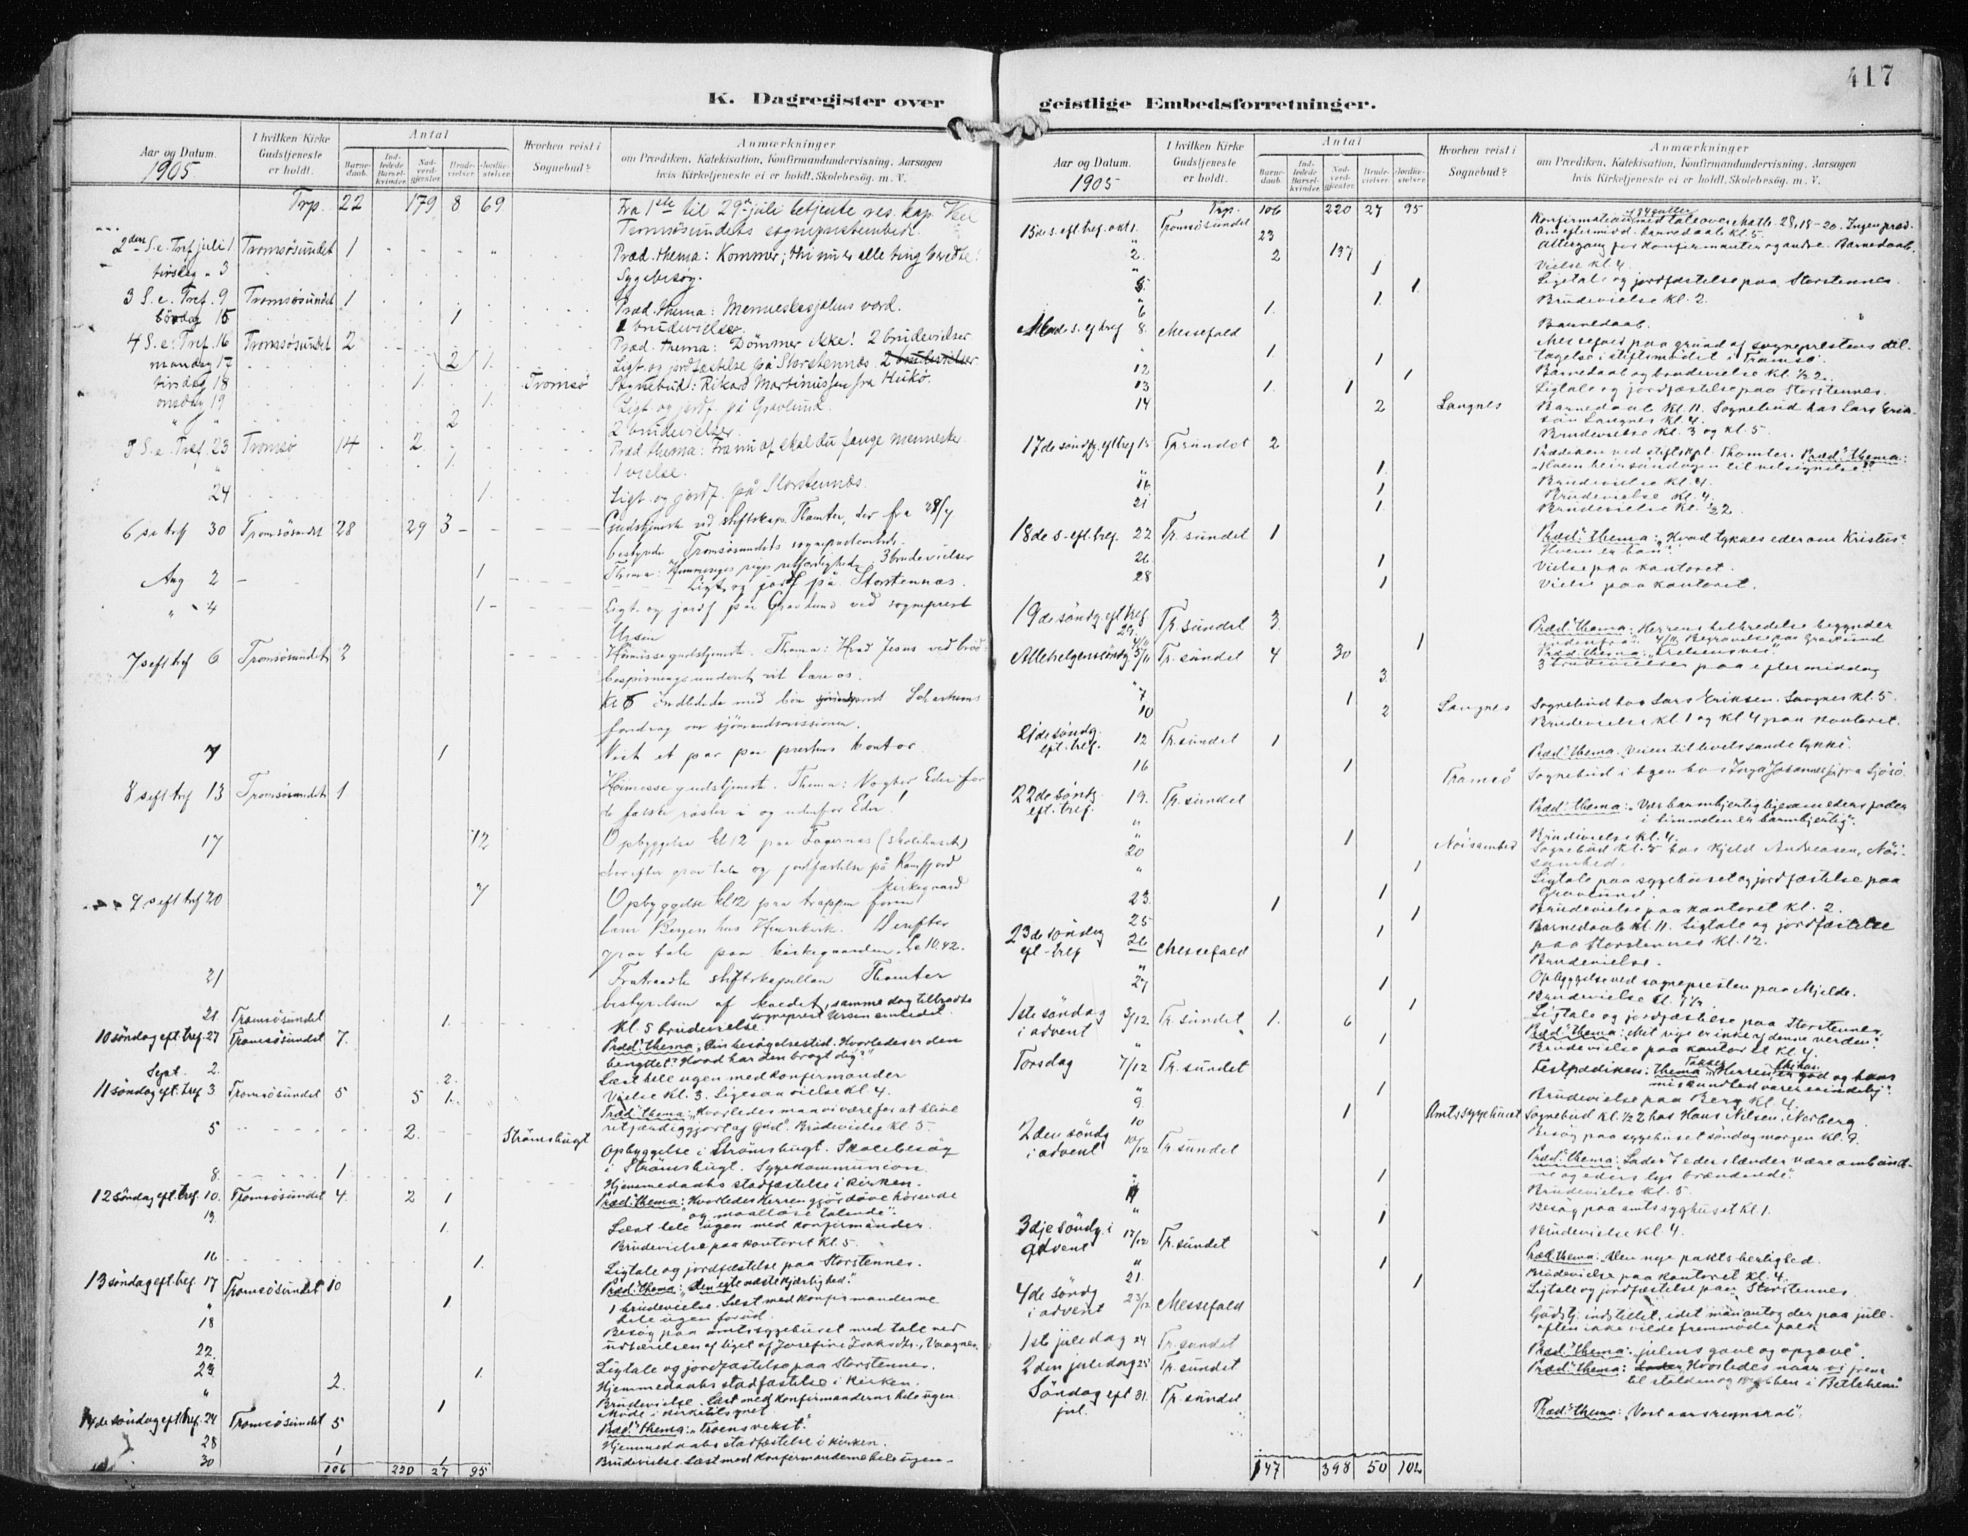 417
K. Dagregister over geistlige Embedsforretninger.
Aar og Datum.
1905
I hvilken Kirke Gudstjeneste er holdt.
Antal
Barnedaab.
Indledede Barselkvinder.
Nadverdgjester.
Brudevielser.
Jordfæstelser.
Hvorhen reist i Sognebud?
Anmærkninger
om Prædiken, Katekisation, Konfirmandundervisning, Aarsagen
hvis Kirketjeneste ei er holdt, Skolebesøg. m. V.
Trp. 22 179 8 69 Fra 1ste til 29de juli betjente res. kap.
Tromsøsundets sogneprestembede.
2den S. e. Tref juli 1. Tromsøsundet 1
Præd. thema: Kommer, thi nu er alle ting beredte!
tirsdag " 3 Sygebesøg.
3 S. e. Tref. 9 Tromsøsundet 1 Præd. thema: Menneskesjælens værd.
15 1 1 brudevielse.
4 S. e. Tref. 16 Tromsøsundet 2 Præd. thema: Dømmer ikke! 2 brudevielser
mandag 17 2 1. Ligt. og jordfæstelse på Storstennæs. 2 brudevielser
tirsdag 18 1 Tromsø Sognebud: Rikard Martinussen fra
onsdag 19 1. Ligt. og jordf. på Gravlund.
" " 2 2 brudevielser.
5 S. e. Tref. 23 Tromsø 14 2 Præd. thema: Fra nu af skal du fange mennesker
" 1. 1 vielse.
24 1. Ligt. og jordf. på Storstennæs.
6 se tref 30 Tromsøsundet 28 29 3 Gudstjeneste ved stiftskap. Thomter, der fra 28/7
bestyrede Tromsøsundets sogneprestembede.
Thema: retfærdighed 3 brudevielser
Aug 2 1 Ligt. og jordf på Storstennæs.
" 4 1 Ligt. og jordf paa Gravlund ved sogneprest
Ursin
7 s eft tref 6 Tromsøsundet 2 Høimessegudstjeneste. Thema: Hvad Jesus ved brød-
bespisningsunderet vil lære os.
Kl 5 indledede med bøn
foredrag om sjømandsmissionen.
7 1 Viet et par paa prestens kontor.
8 s eft tref 13 Tromsøsundet 1 Høimessegudstjeneste. Thema: Vogter Eder for
de falske røster i og udenfor Eder!
17 12 Opbyggelse kl 12 paa Fagernæs (skolehuset)
derefter grav tale og jordfæstelse på Ramfjord
kirkegaard
9 s eft tref 20 7 Opbyggelse kl 12 paa trappen foran
Lars hus Derefter
grav tale paa kirkegaarden.
21 Fratraadte stiftskapellan Thomter
bestyrelsen af kaldet, samme dag tiltraadte
sogneprest Ursin embedet.
21. Tromsøsundet 1. Kl. 5 brudevielse
10 søndag eft. tref. 27 Tromsøsundet 7. Præd. thema: "Din besøgelsestid. Hvorledes er den
benyttet? Hvad har den bragt dig?"
Sept. 2. 2. Læst hele ugen med konfirmander
Vielse kl. 3. Ligesaa vielse kl. 4.
11 søndag eft. tref 3 Tromsøsundet 5 5 1. Præd. thema: "Hvorledes maa vi være for at blive
retfærdiggjort af Gud". Brudevielse kl. 5.
5 2. Strømsbugt Opbyggelse i Strømsbugt. Skolebesøg
i Strømsbugt. Sygekommunion.
8. 1. Hjemmedaabs stadfæstelse i kirken.
12 søndag eft. tref. 10. Tromsøsundet 4. 2 1 Præd. thema: Hvorledes Herren gjør døve hørende
og maalløse talende".
13. 1. Læst hele ugen med konfirmander.
Brudevielse paa kontoret kl. 5.
16 1. Ligtale og jordfæstelse paa Storstennes.
13 søndag eft. tref. 17 Tromsøsundet 10 Præd. thema: "Den egte næstekjærlighed".
" 1 1 brudevielse. Læst med konfirmanderne
hele ugen forud.
18 Besøg paa amtssygehuset med tale ved
udbærelsen af liget af Josefine
22.
23. 1. Ligtale og jordfæstelse paa Storstennes.
" 2. Hjemmedaabs stadfæstelse i kirken.
1 Brudevielse. Læst med konfirmanderne hele ugen.
14de søndag eft. tref. 24 Tromsøsundet 5 Præd. thema: "Troens vekst".
28 1 Hjemmedaabs stadfæstelse i kirken.
30 1 Brudevielse. Læst med konfirmanderne hele ugen.
106 220 27 95
Aar og Datum.
1905
I hvilken Kirke Gudstjeneste er holdt.
Antal
Barnedaab.
Indledede Barselkvinder.
Nadverdgjester.
Brudevielser.
Jordfæstelser.
Hvorhen reist i Sognebud?
Anmærkninger
om Prædiken, Katekisation, Konfirmandundervisning, Aarsagen
hvis Kirketjeneste ei er holdt, Skolebesøg. m. V.
Trp. 106 220 27 95
15de s. eft tref. okt 1. Tromsøsundet Konfirmation med tale over Matth. 28, 18-20. Ingen præd.
" 23 Om eftermidd. barnedaab kl. 5.
2. 2 137 Altergang for konfirmanter og andre. Barnedaab.
" 1 Vielse kl. 4.
5. 1. Ligtale og jordfæstelse paa Storstennes.
" 1. Brudevielse kl. 2.
6 1. Barnedaab.
16de s. ef tref 8. Messefald Messefald paa grund af sogneprestens del-
tagelse i stiftsmødet i Tromsø.
" 1. 1 Barnedaab og brudevielse kl. 1/2 2.
12 1 Ligtale og jordfæstelse paa Storstennes.
13 1. 1 Langnes Barnedaab kl. 11. Sognebud hos Lars Erik-
sen Langnes kl. 4.
14 2 Brudevielse kl. 3 og kl. 5.
17de søndg. eft tref 15 Tr.sundet 2 Prædiken ved stiftskpl. Thomter. Præd. thema:
til velsignelse?"
" 1. Brudevielse kl. 4.
16 1 Brudevielse kl. 4.
21. 1. Brudevielse kl. 1/2 2.
18de s. eft. tref. 22 Tr. sundet 1 Præd. thema: "Hvad tykkes eder om Kristus?
Hvem er han?"
26. 1 Vielse paa kontoret.
28 1 Vielse paa kontoret.
19de søndg. eft tref 29. Tr. sundet 3. Præd. thema: Herrens helbredelse begynder
indenfra". 4/11 Begravelse paa Gravlund
4/11 1
Allehelgenssøndg. 5/11 Tr. sundet 4 30 Præd. thema: "Frelsens vei".
" 3. 3 brudevielser paa eftermiddag
7 1. Langnes Sognebud hos Lars Eriksen. Langnes kl. 5.
10 2 Brudevielse kl 1 og kl. 4 paa kontoret.
21de søndg. eft. tref. 12 Tr. sundet 1 Præd. thema. Veien til livets sande lykke.
16 1 Tromsø Sognebud i byen
22de søndg. eft. tref. 19. Tr. sundet Præd. thema: "Vær barmhjertig ligesom eders fader
i himmelen er barmhjertig".
" Brudevielse kl. 4.
20 1 Sognebud kl. hos Kjeld Andreasen,
" 1 Ligtale paa sygehuset og jordfæstelse paa
Gravlund.
23. 1 Brudevielse paa kontoret kl. 2.
25 1 1 Barnedaab kl. 11. Ligtale og jordfæstelse
paa Storstennes kl. 12.
23de søndag eft. tref 26 Messefald 1 Brudevielse.
" Opbyggelse ved sognepresten paa Mjelde.
27 1 Brudevielse kl.
1ste søndag i advent 3/12 Tr. sundet 1. 6 1 Ligtale og jordfæstelse paa Storstennes.
Præd. thema: "Mit rige er ikke af denne verden".
" 1 Brudevielse paa kontoret kl. 4.
Torsdag 7/12 Tr. sundet Festprædiken: thema: "Takker Herren, thi han er god og hans
miskundhed varer evindelig".
" 1 Brudevielse paa Berg kl. 4.
9. 1 Amtssygehuset Sognebud kl. 1/2 2 hos Hans Nilsen,
10 Besøg paa sygehuset søndag morgen kl. 9.
2den søndg i advent 10/12 Tr. sundet Præd. thema: "Lader Eders lænder være ombund-
ne og eders lys brændende".
" 1 Brudevielse kl. 5.
Besøg paa amtssyghuset kl 1.
" 1 Brudevielse kl. 4.
3dje søndg. i advent 17/12 Tr. sundet Præd. thema: "Den nye pakts herlighed.
" 1 Brudevielse paa kontoret kl. 4.
21. 1 Ligtale og jordfæstelse paa Storstennes.
4de søndg i advent Messefald Gudstj. indstillet, idet man antog der paa jule-
aften ikke vilde fremmøde folk
1ste juledag 24 Tr. sundet Præd. thema: "julens gave og opgave".
2den juledag 25 Tr. sundet Præd. thema: Hvorledes naar vi frem
til stalden og krybben i Betlehem"
Søndag eft jul. 31. Tr. sundet Præd. thema: "Vort aarsregnskab".
147 398 50 102